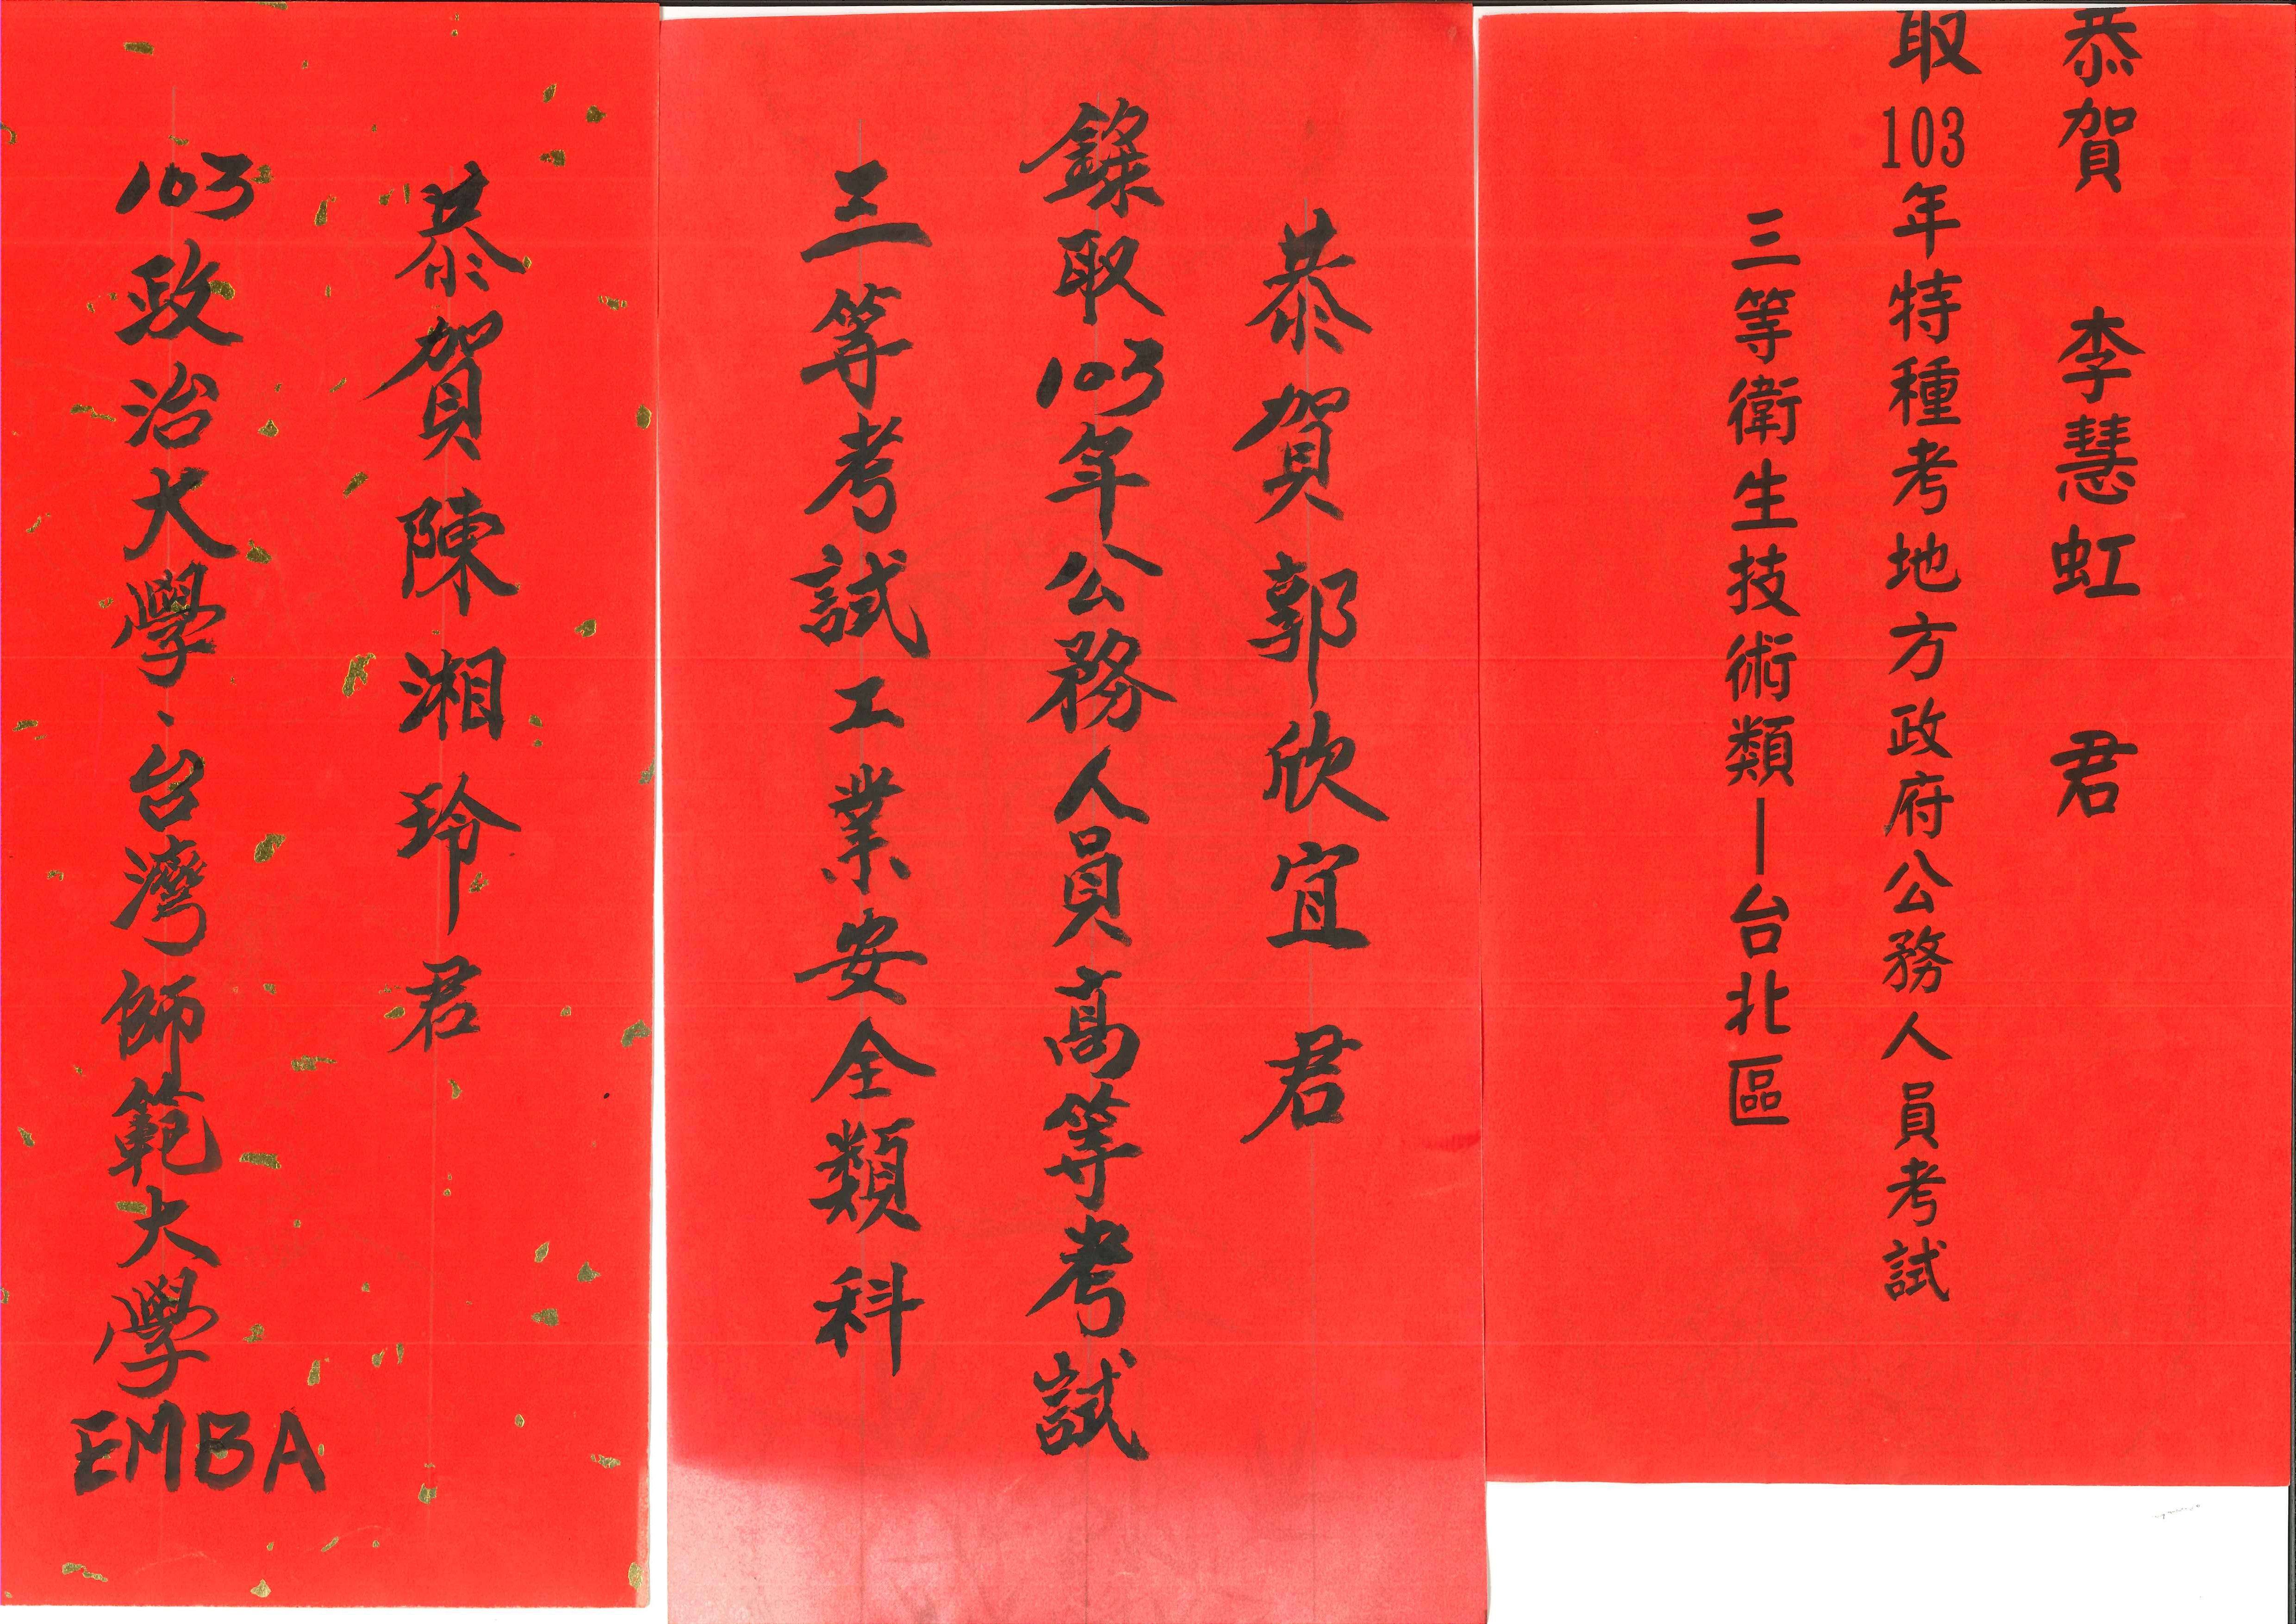 恭賀 李慧虹 君
取103年特種考地方政府公務人員考試
三等衛生技術類—台北區
恭賀郭欣宜君
錄取103年公務人員高等考試
三等考試工業安全類科
恭賀陳湘玲君
103政治大學、台灣師範大學EMBA